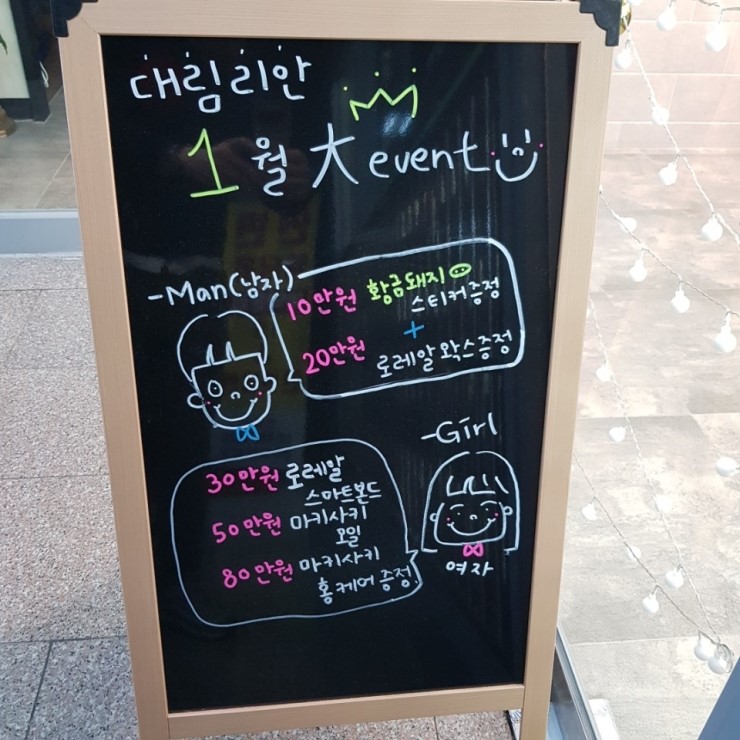 대림리안
1월 大 event
-Man(남자)
10만원 황금돼지
스티커증정
+
20만원 로레알왁스증정
-Girl
여자
30만원 로레알
스마트본드
50만원 마키사키
오일
80만원 마키사키
홈케어 증정